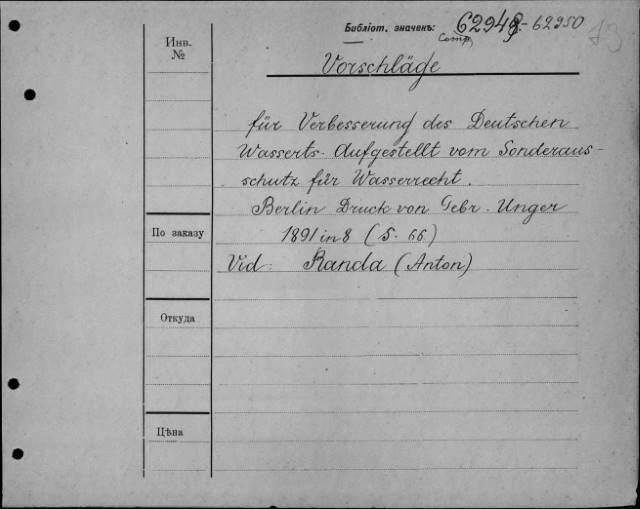 Библіот. значекъ: 62949-62950
Comp.
13
Инв.
№
Vorschläge
für Verbesserung des Deutschen
Wasserts. Aufgestellt vom Sonderaus-
schutz für Wasserrecht.
Berlin Druck von Gebr. Unger
По заказу
1891 in 8 (S. 66)
Vid. Randa (Anton)
Откуда
Цѣна